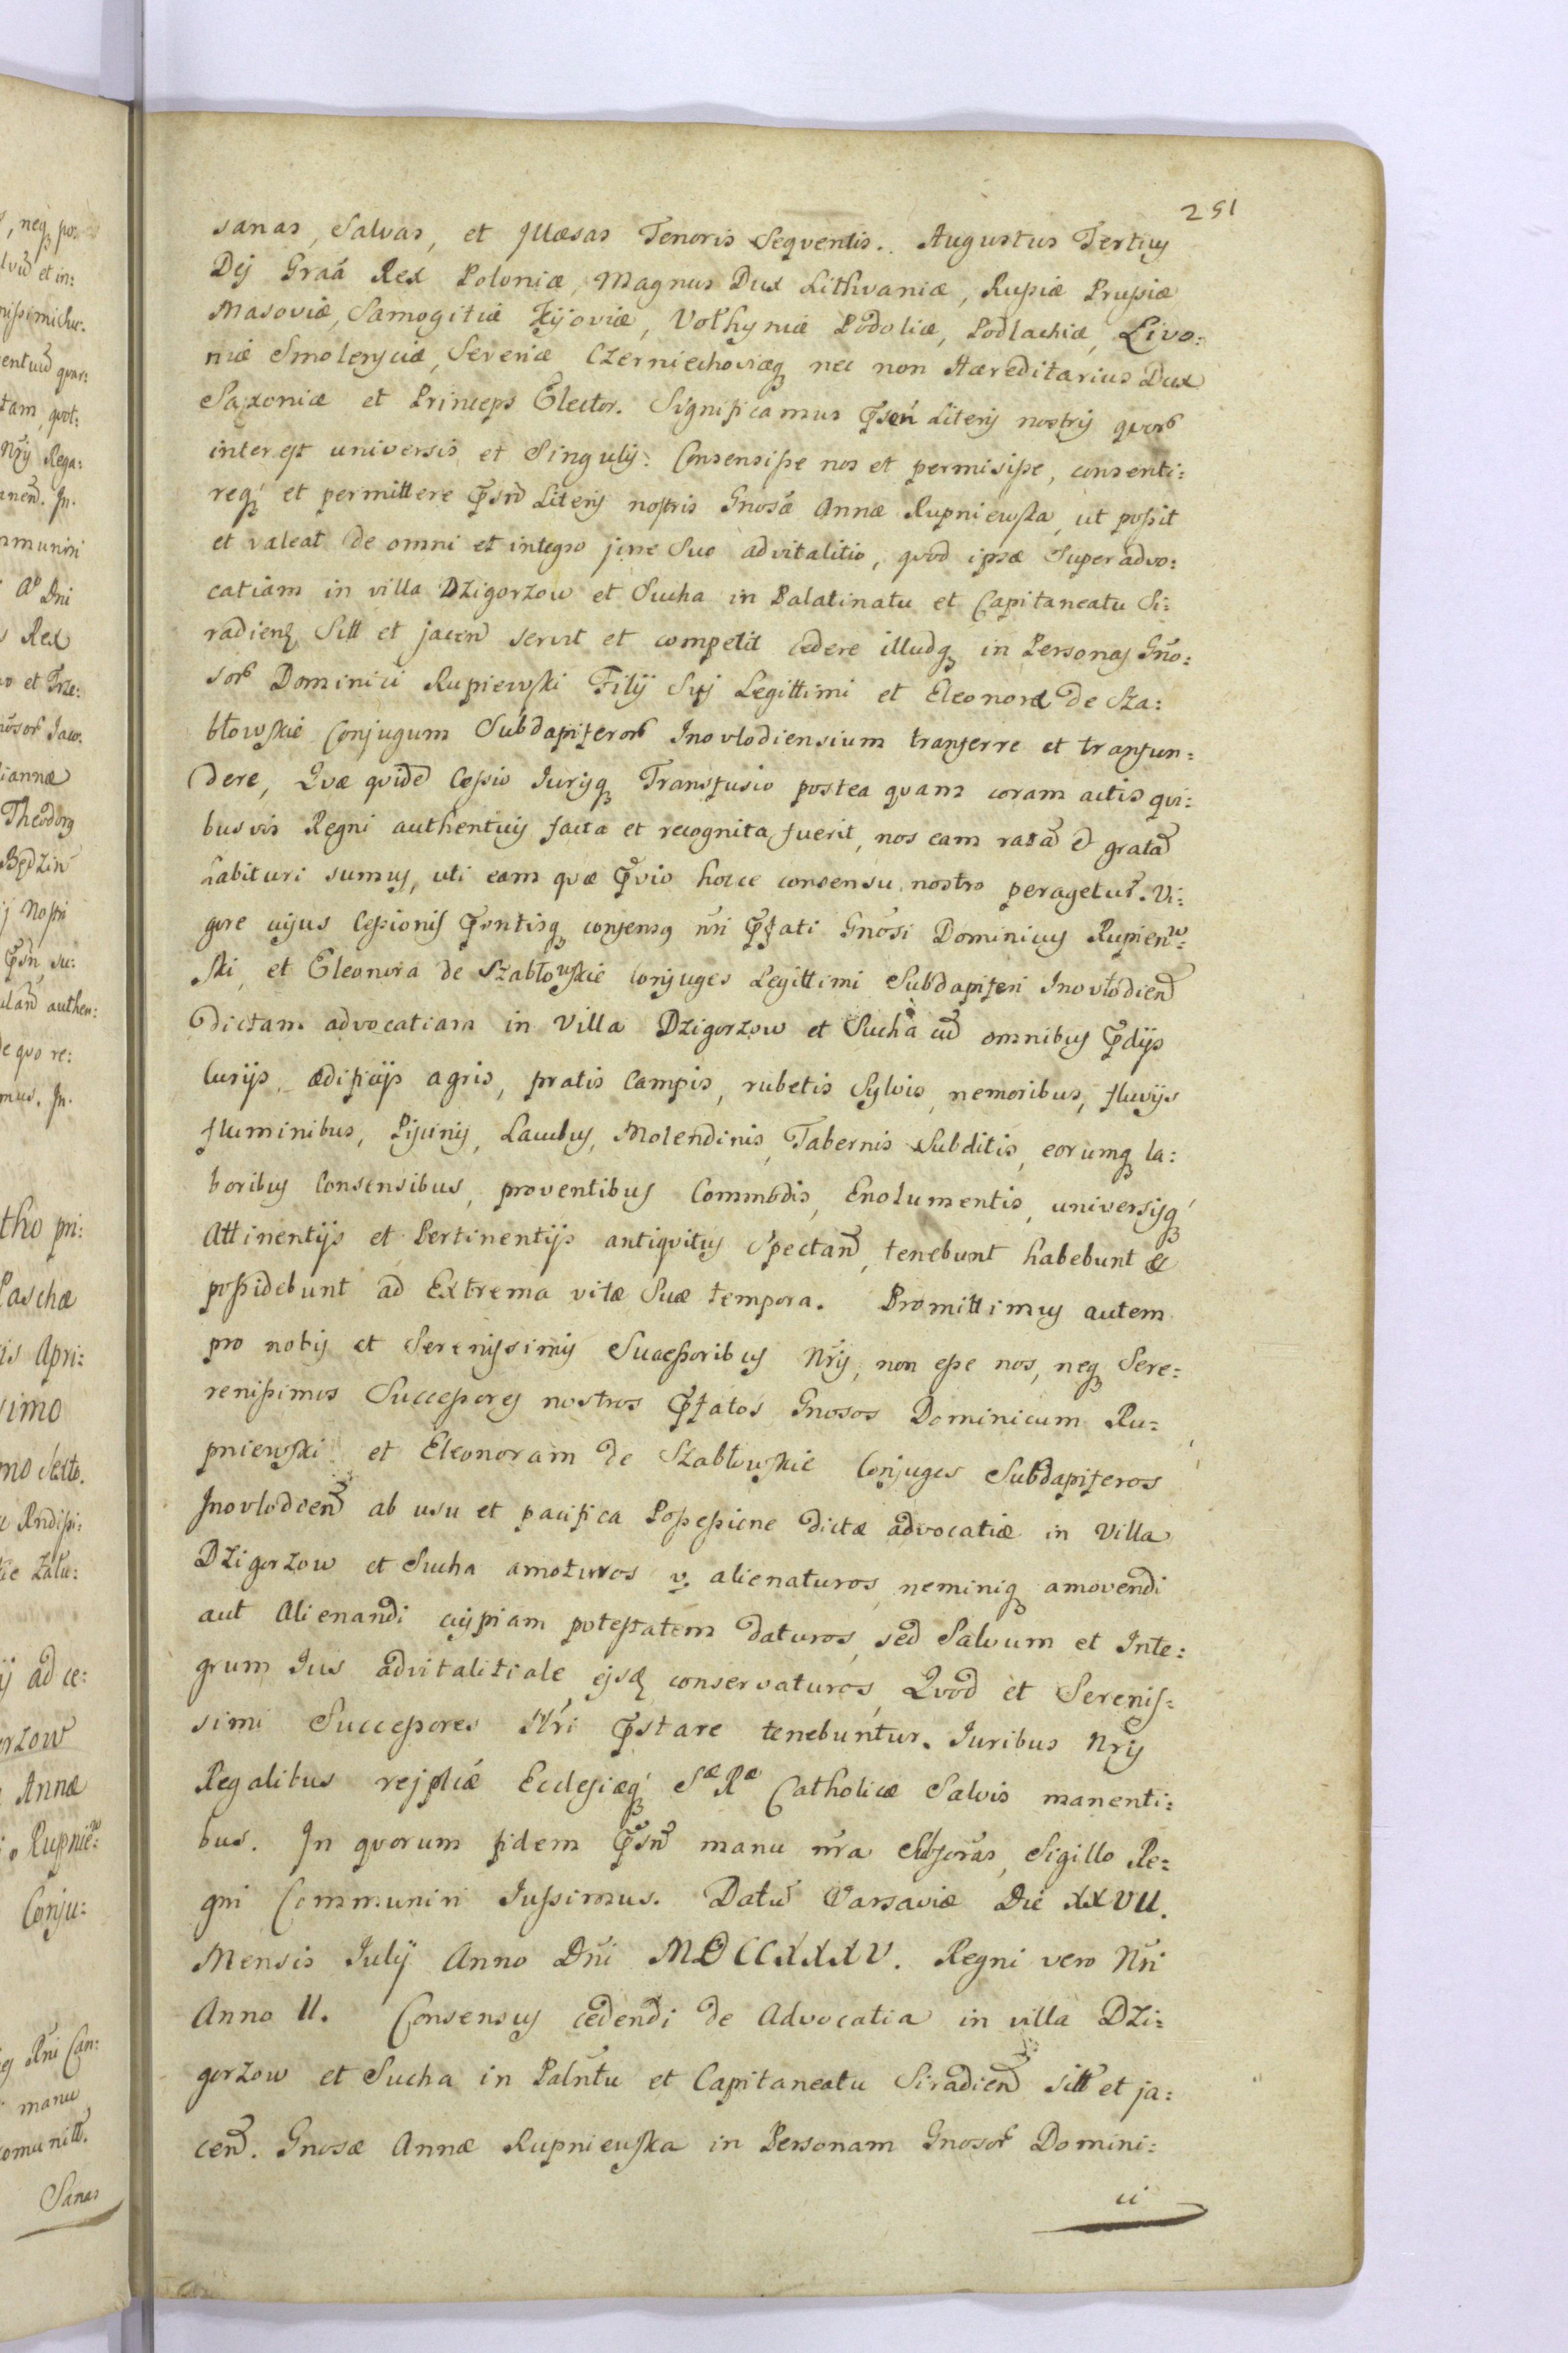 251
sanas, Salvas, et Jllæsas Tenoris Seqventis. Augustus Tertius
Dej Graã Rex Poloniæ, Magnus Dux Lithvaniæ, Russiæ Prussiæ
Masoviæ, Samogitiæ Kijoviæ, Volhyniæ Podoliæ, Podlachiæ, Livo:
niæ Smolensciæ, Severiæ Czerniechoviæq nec non Hæreditarius Dux
Saxoniæ et Princeps Elector. Significamus Psen Literis nostris qvorb
interest universis et Singulis. Consensisse nos et permisisse, consenti:
req et permittere Psn Literis nostris Gnosæ Annæ Rupniewska, ut possit
et valeat de omni et integro jure Suo advitalitio, qvod ipsæ Super advo:
catiam in villa Dzigorzow et Sucha in Palatinatu et Capitaneatu Si:
radien Sitt et jacen servit et competit cedere illudq in Personas Gno:
sorb Dominici Rupiewski Filij Sui Legittimi et Eleonoræ de Sza:
błowskie Conjugum Subdapiferorb Inovlodiensium transferre et transfun:
dere, Qvæ qvide Cessio Jurisq Transfusio postea qvam coram actis qvi:
busvis Regni authenticis facta et recognita fuerit, nos eam rata et grata
habituri sumus, uti eam qvæ Pvio hocce consensu nostro peragetur. Vi:
gore cujus Cessionis Psntisq consensq nri Pfati Gnosi Dominicus Rupienw:
ski, et Eleonora de Szabłowskie conjuges Legittimi Subdapiferi Inovłodien
dictam advocatiam in Villa Dzigorzow et Sucha cu omnibus Pdijs
Curijs, ædificijs agris, pratis Campis, rubetis Sylvis, nemoribus, fluvijs
fluminibus, Piscinis, Lacubus, Molendinis, Tabernis Subditis, eorumq la:
boribus Consensibus, proventibus Commodis, Enolumentis, universisq
Attinentijs et Pertinentijs antiqvitus Spectan, tenebunt habebunt &
possidebunt ad Extrema vitæ Suæ tempora. Promittimus autem
pro nobis et Serenissimis Successoribus Nris, non esse nos, neq Sere:
renissimos Successores nostros Pfatos Gnosos Dominicum Ru:
pniewski et Eleonoram de Szabłowskie Conjuges Subdapiferos
Jnovlodien ab usu et pacifica Possessione dictæ advocatiæ in Villa
Dzigorzow et Sucha amoturos v. alienaturos, neminiq amovendi
aut Alienandi cuipiam potestatem daturos, sed Salvum et Inte:
grum Jus advitalitiale ejsd conservaturos, Qvod et Serenis:
simi Successores Nri Pstare tenebuntur. Juribus Nris
Regalibus rejplicæ Ecclesiæq Sæ Ræ Catholicæ Salvis manenti:
bus. In qvorum fidem Psn manu nra Subscras, Sigillo Re:
gni Communiri Jussimus. Datu Varsaviæ Die XXVII.
Mensis Julij Anno Dni MDCCXXXV. Regni vero Nri
Anno II. Consensus cedendi de Advocatia in villa Dzi:
gorzow et Sucha in Palntu et Capitaneatu Siradien sitt et ja:
cen. Gnosæ Annæ Rupniewska in Personam Gnosorb Domini:
ci